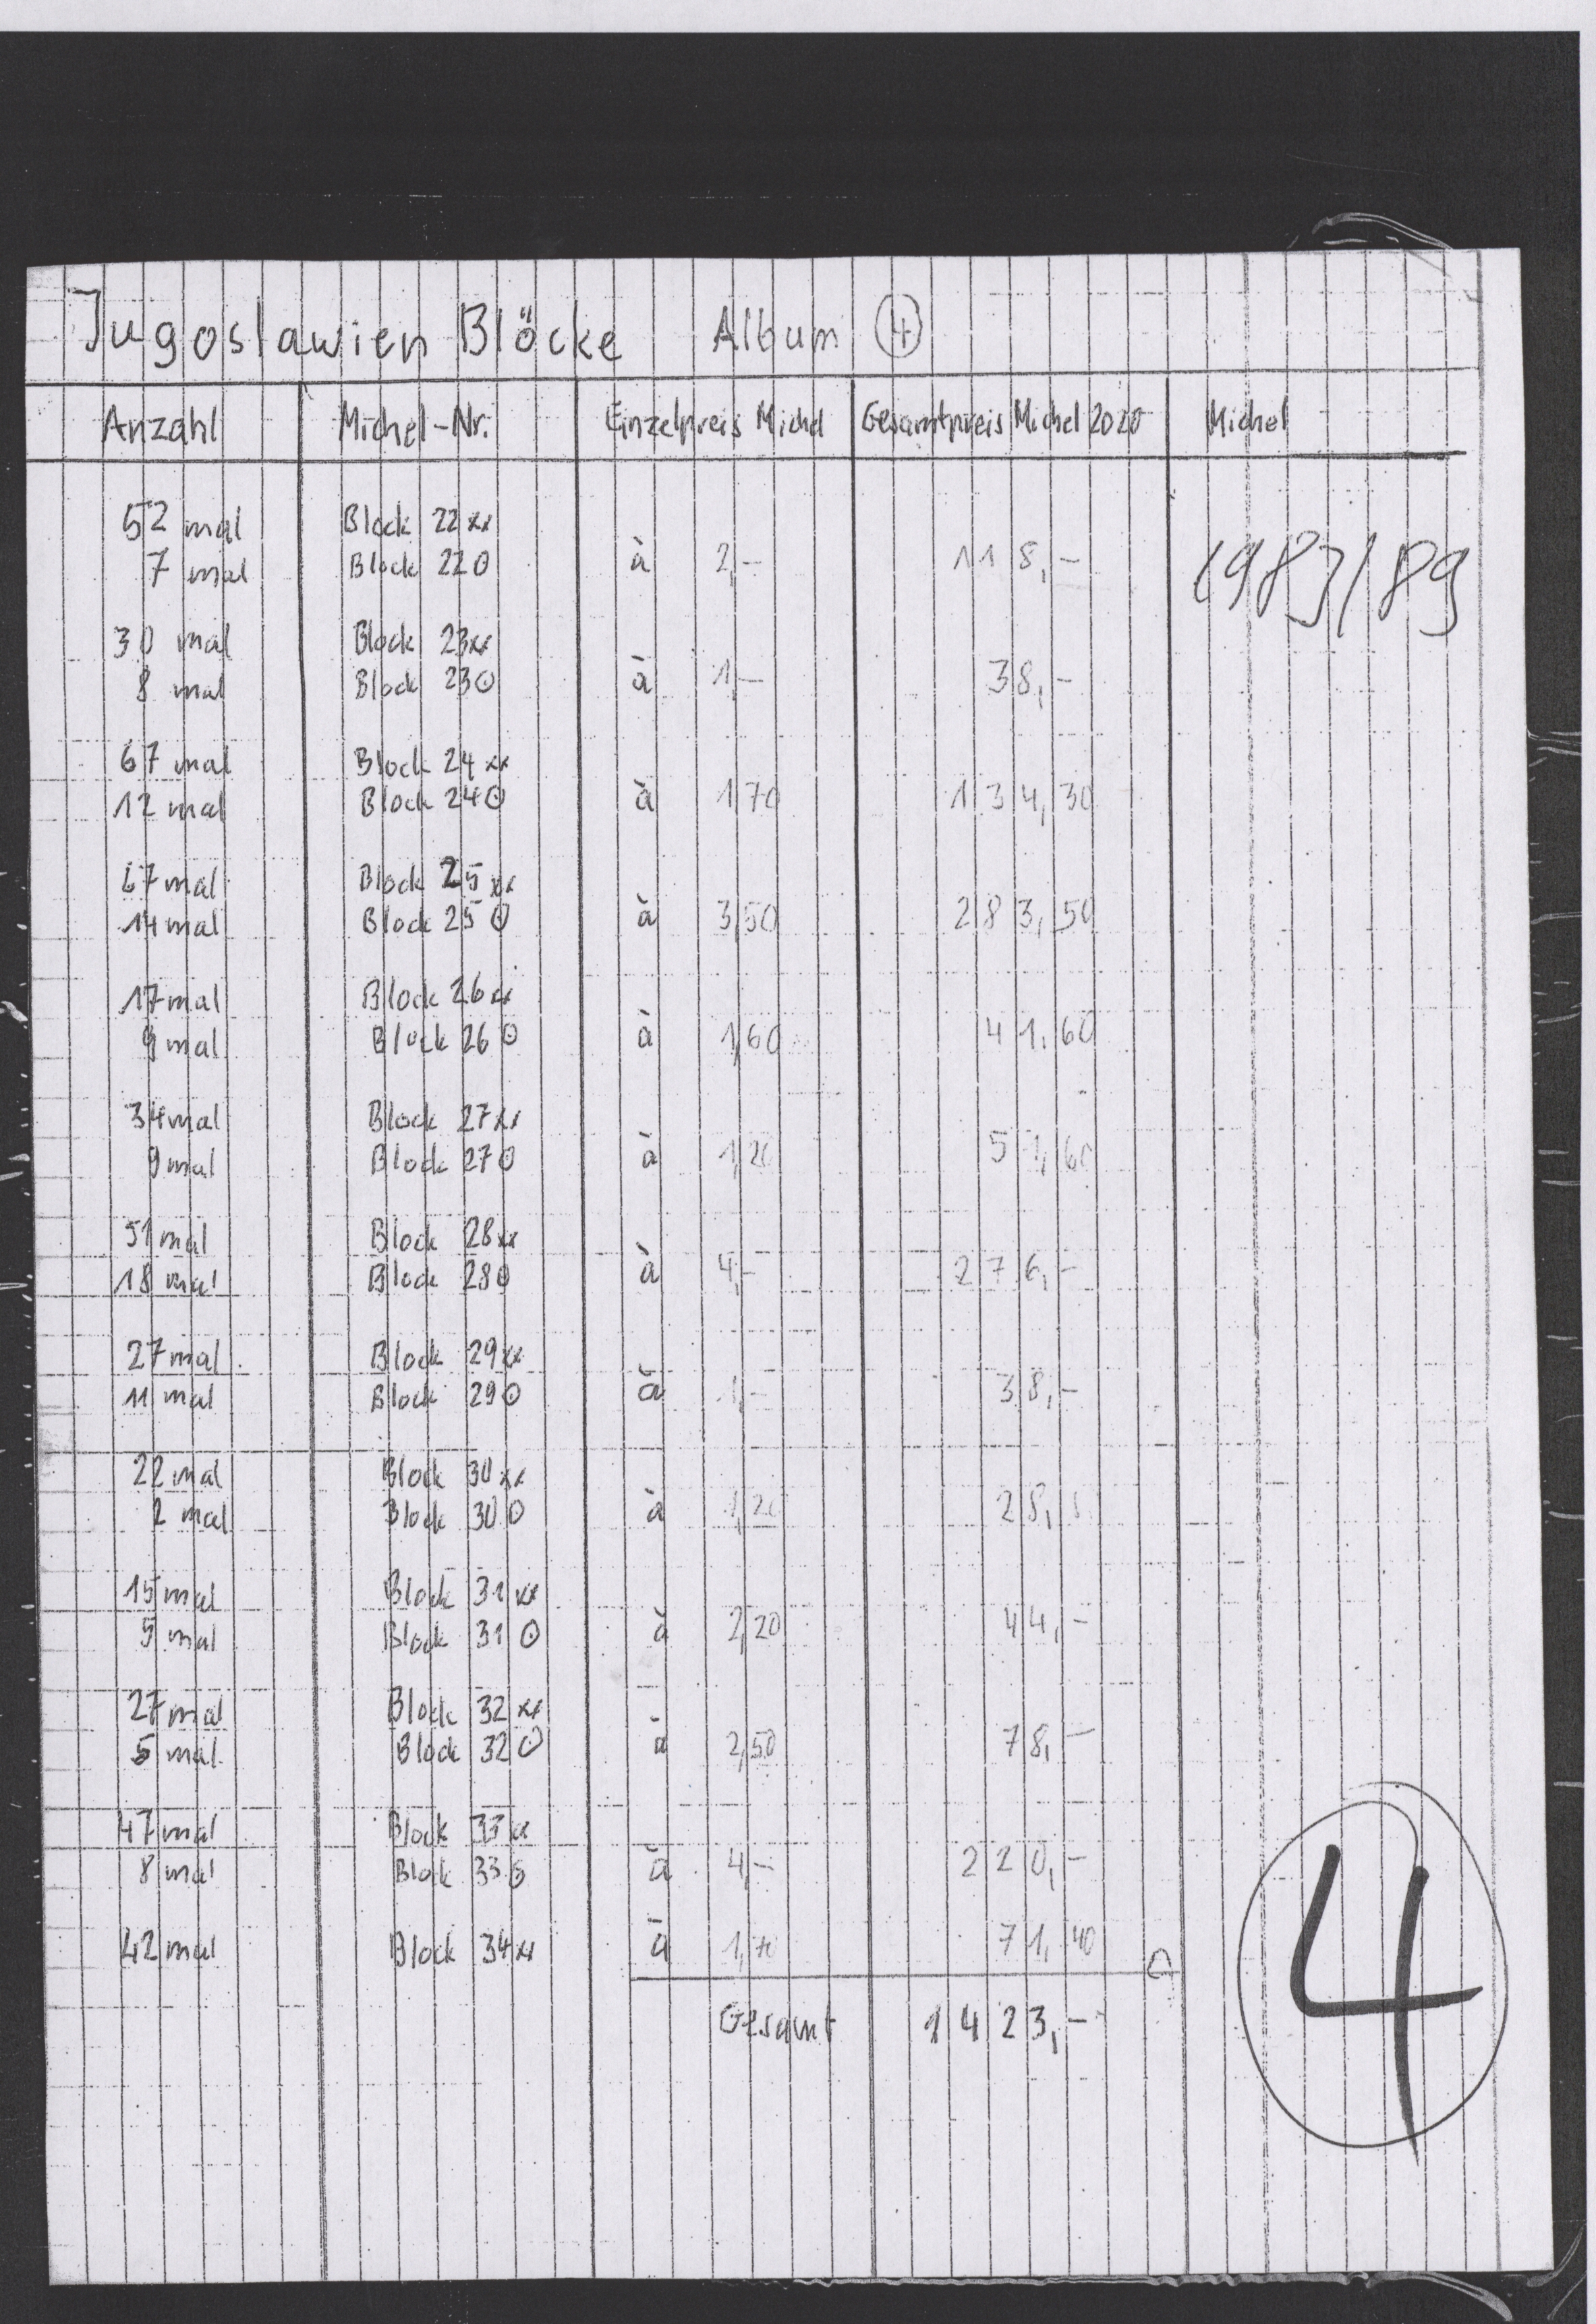 Jugoslawien Blöcke Album 4
Anzahl Michel-Nr. Einzelpreis Michel Gesamtpreis Michel 2020 Michel
52 mal Block 22 xx
7 mal Block 22 ⊙ à 2,- 118,- 1983/89
30 mal Block 23 xx
8 mal Block 23 ⊙ à 1,- 38,-
67 mal Block 24 xx
12 mal Block 24 ⊙ à 1,70 134,30
67 mal Block 25 xx
14 mal Block 25 ⊙ à 3,50 283,50
17 mal Block 26 xx
9 mal Block 26 ⊙ à 1,60 41,60
34 mal Block 27 xx
9 mal Block 27 ⊙ à 1,20 51,60
51 mal Block 28 xx
18 mal Block 28 ⊙ à 4,- 276,-
27 mal Block 29 xx
11 mal Block 29 ⊙ à 1,- 38,-
22 mal Block 30 xx
2 mal Block 30 ⊙ à 1,20
15 mal Block 31 xx
5 mal Block 31 ⊙ à 2,20 44,-
27 mal Block 32 xx
5 mal Block 32 ⊙ à 2,50 78,-
47 mal Block 33 xx
8 mal Block 33 ⊙ à 4,- 220,-
42 mal Block 34 xx à 1,70 71,40
Gesamt 1423,-
4